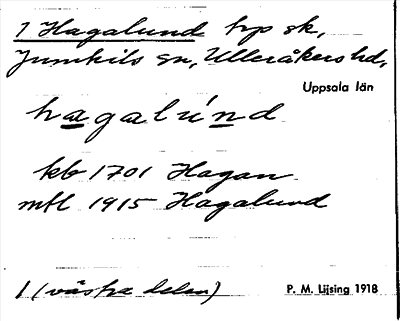 1 Hagalund hp sk,
Jumkils sn, Ulleråkers hd,
Uppsala län
hagalúnd
kb 1701 Hagan
mtl 1915 Hagalund
1 (västra delen)
P. M. Lijsing 1918